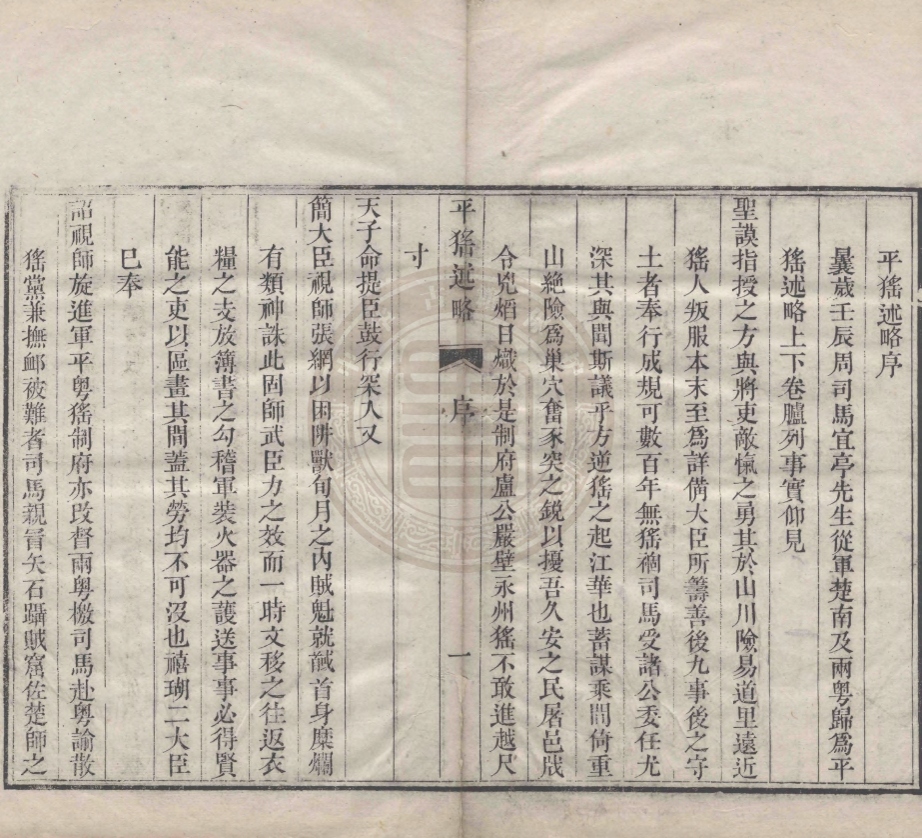 平猺述略序
曩歲壬辰周司馬宜亭先生從軍楚南及兩粵歸爲平
猺述略上下卷臚列事實仰見
聖謨指授之方與將吏敵愾之勇其於山川險易道里遠近
猺人叛服本末至爲詳備大臣所籌善後九事後之守
土者奉行成規可數百年無猺禍司馬受諸公委任尤
深其與聞斯議乎方逆猺之起江華也蓄謀乘間倚重
山絶險爲巢穴奮豕突之鋭以擾吾久安之民屠邑戕
令兇熖日熾於是制府盧公嚴壁永州猺不敢進越尺
平猺述略
序
一
寸
天子命提臣鼓行深入又
簡大臣視師張網以困阱獸旬月之內賊魁就馘首身糜爛
有類神誅此固師武臣力之效而一時文移之往返衣
糧之支放簿書之勾稽軍裝火器之護送事事必得賢
能之吏以區畫其間蓋其勞均不可沒也禧瑚二大臣
巳奉
詔視師旋進軍平粵猺制府亦改督兩粵檄司馬赴粵諭散
猺黨兼撫䘏被難者司馬親冒矢石躡賊窟佐楚師之